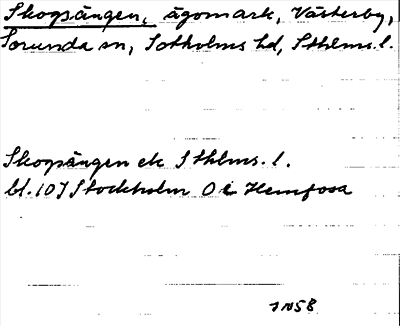 Skogsängen, ägomark, Västerby,
Sorunda sn, Sotholms hd, Sthlms. l.
Skogsängen ek Sthlms. l.
bl. 107 Stockholm O i Hemfosa
1958